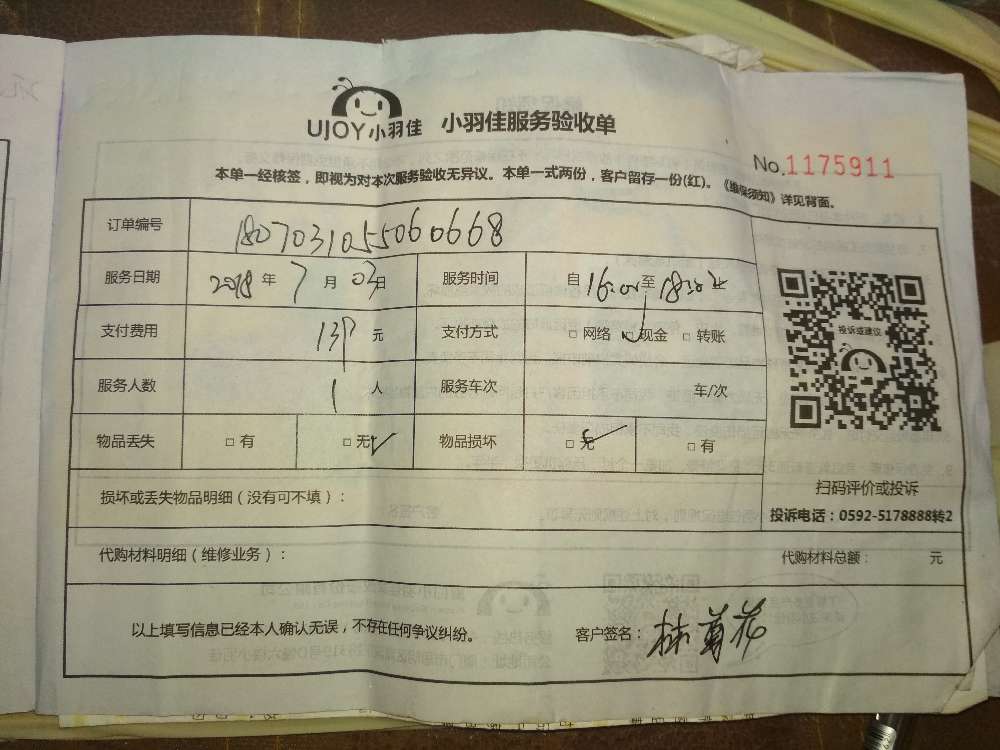 UJOY小羽佳 小羽佳服务验收单
No.1175911
本单一经核签，即视为对本次服务验收无异议。本单一式两份，客户留存一份(红)。《维保须知》详见背面。
订单编号 1807031055060668
服务日期 2018年7月03日 服务时间 自16:00至18:30止
支付费用 元 支付方式 □网络 □现金 □转账
服务人数 1人 服务车次 车/次
物品丢失 □有 □无✓ 物品损坏 □无✓ □有
投诉或建议
扫码评价或投诉
投诉电话：0592-5178888转2
损坏或丢失物品明细（没有可不填）：
代购材料明细（维修业务）： 代购材料总额： 元
以上填写信息已经本人确认无误，不存在任何争议纠纷。 客户签名：林菊花